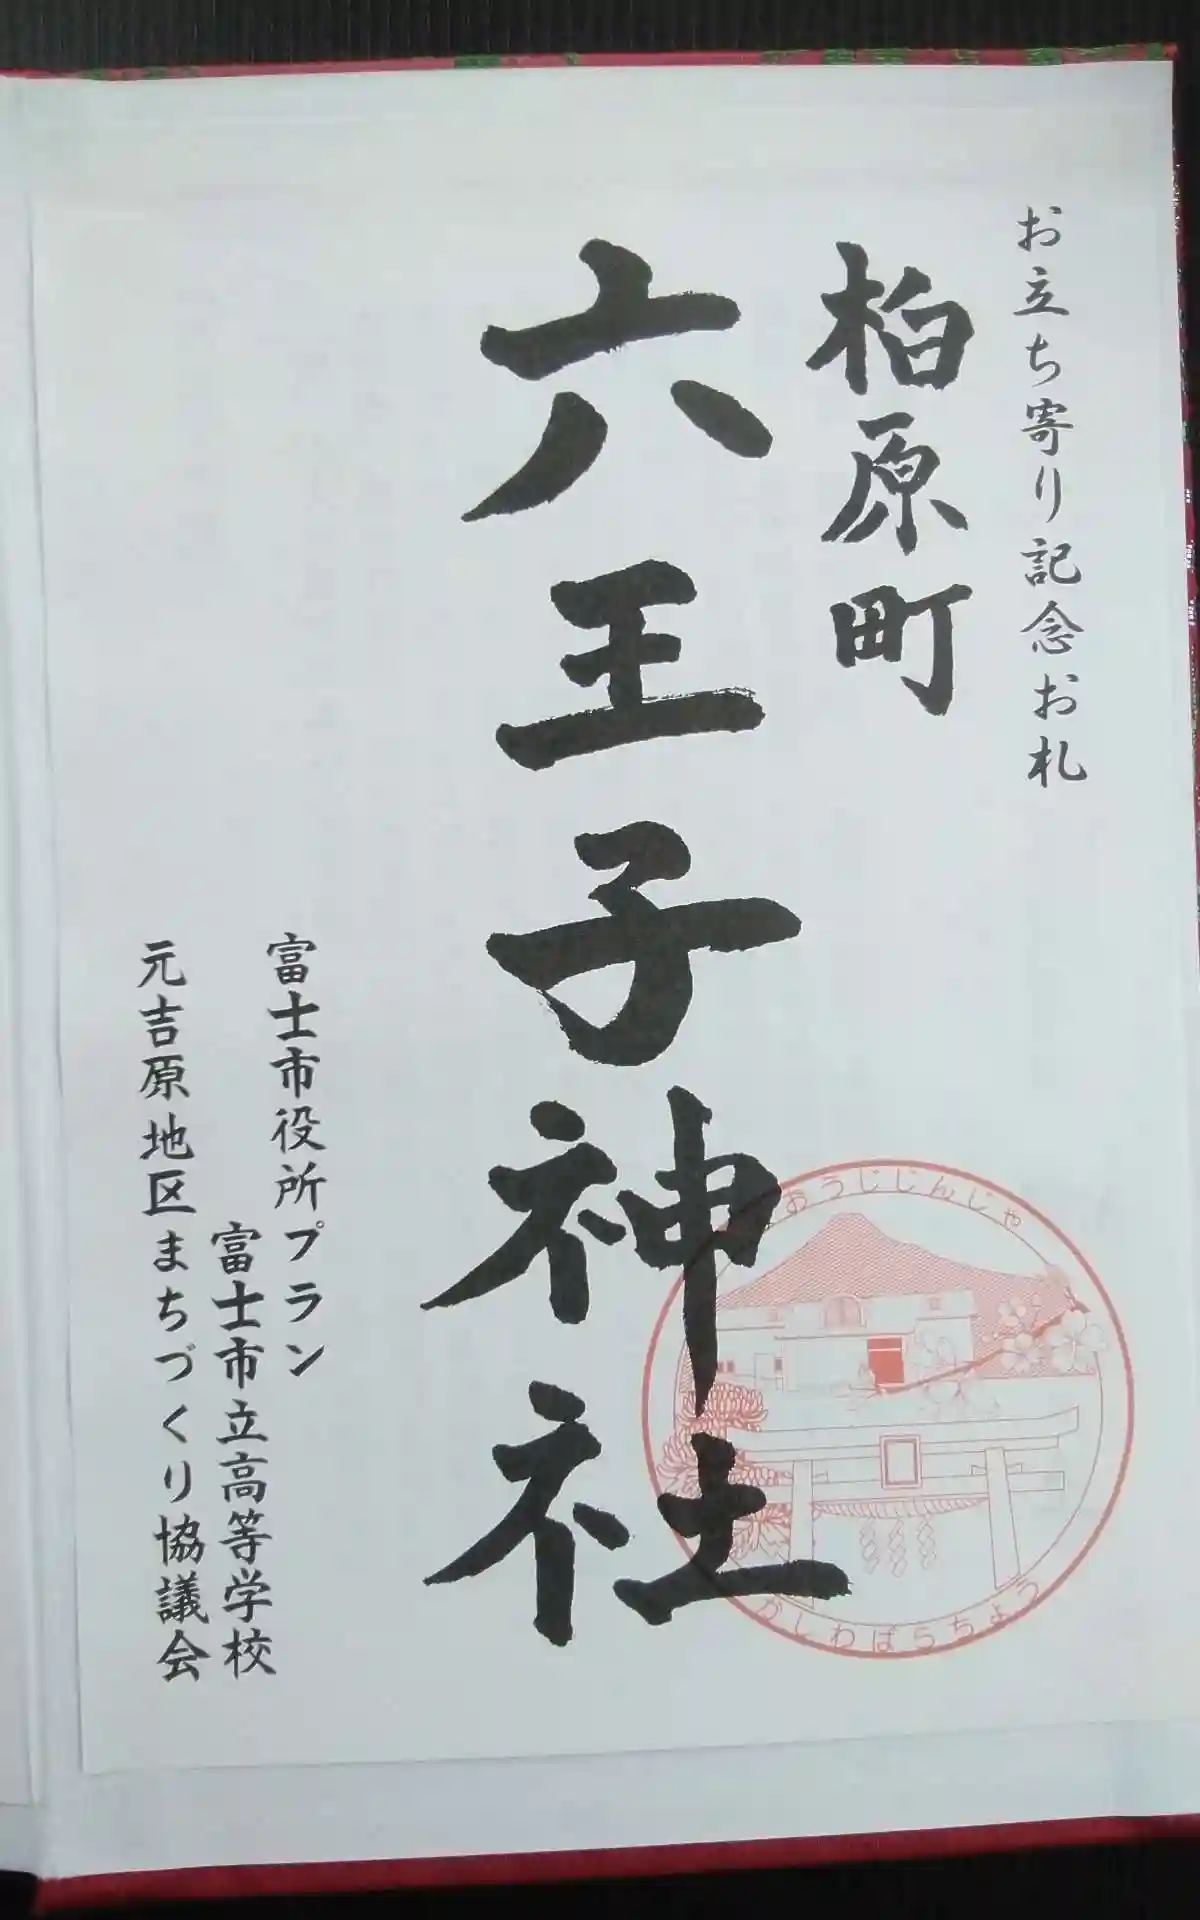 お立ち寄り記念お札
柏原町
六王子神社
富士市役所プラン
富士市立高等学校
元吉原地区まちづくり協議会
おうじじんじゃ
かしわばらちょう